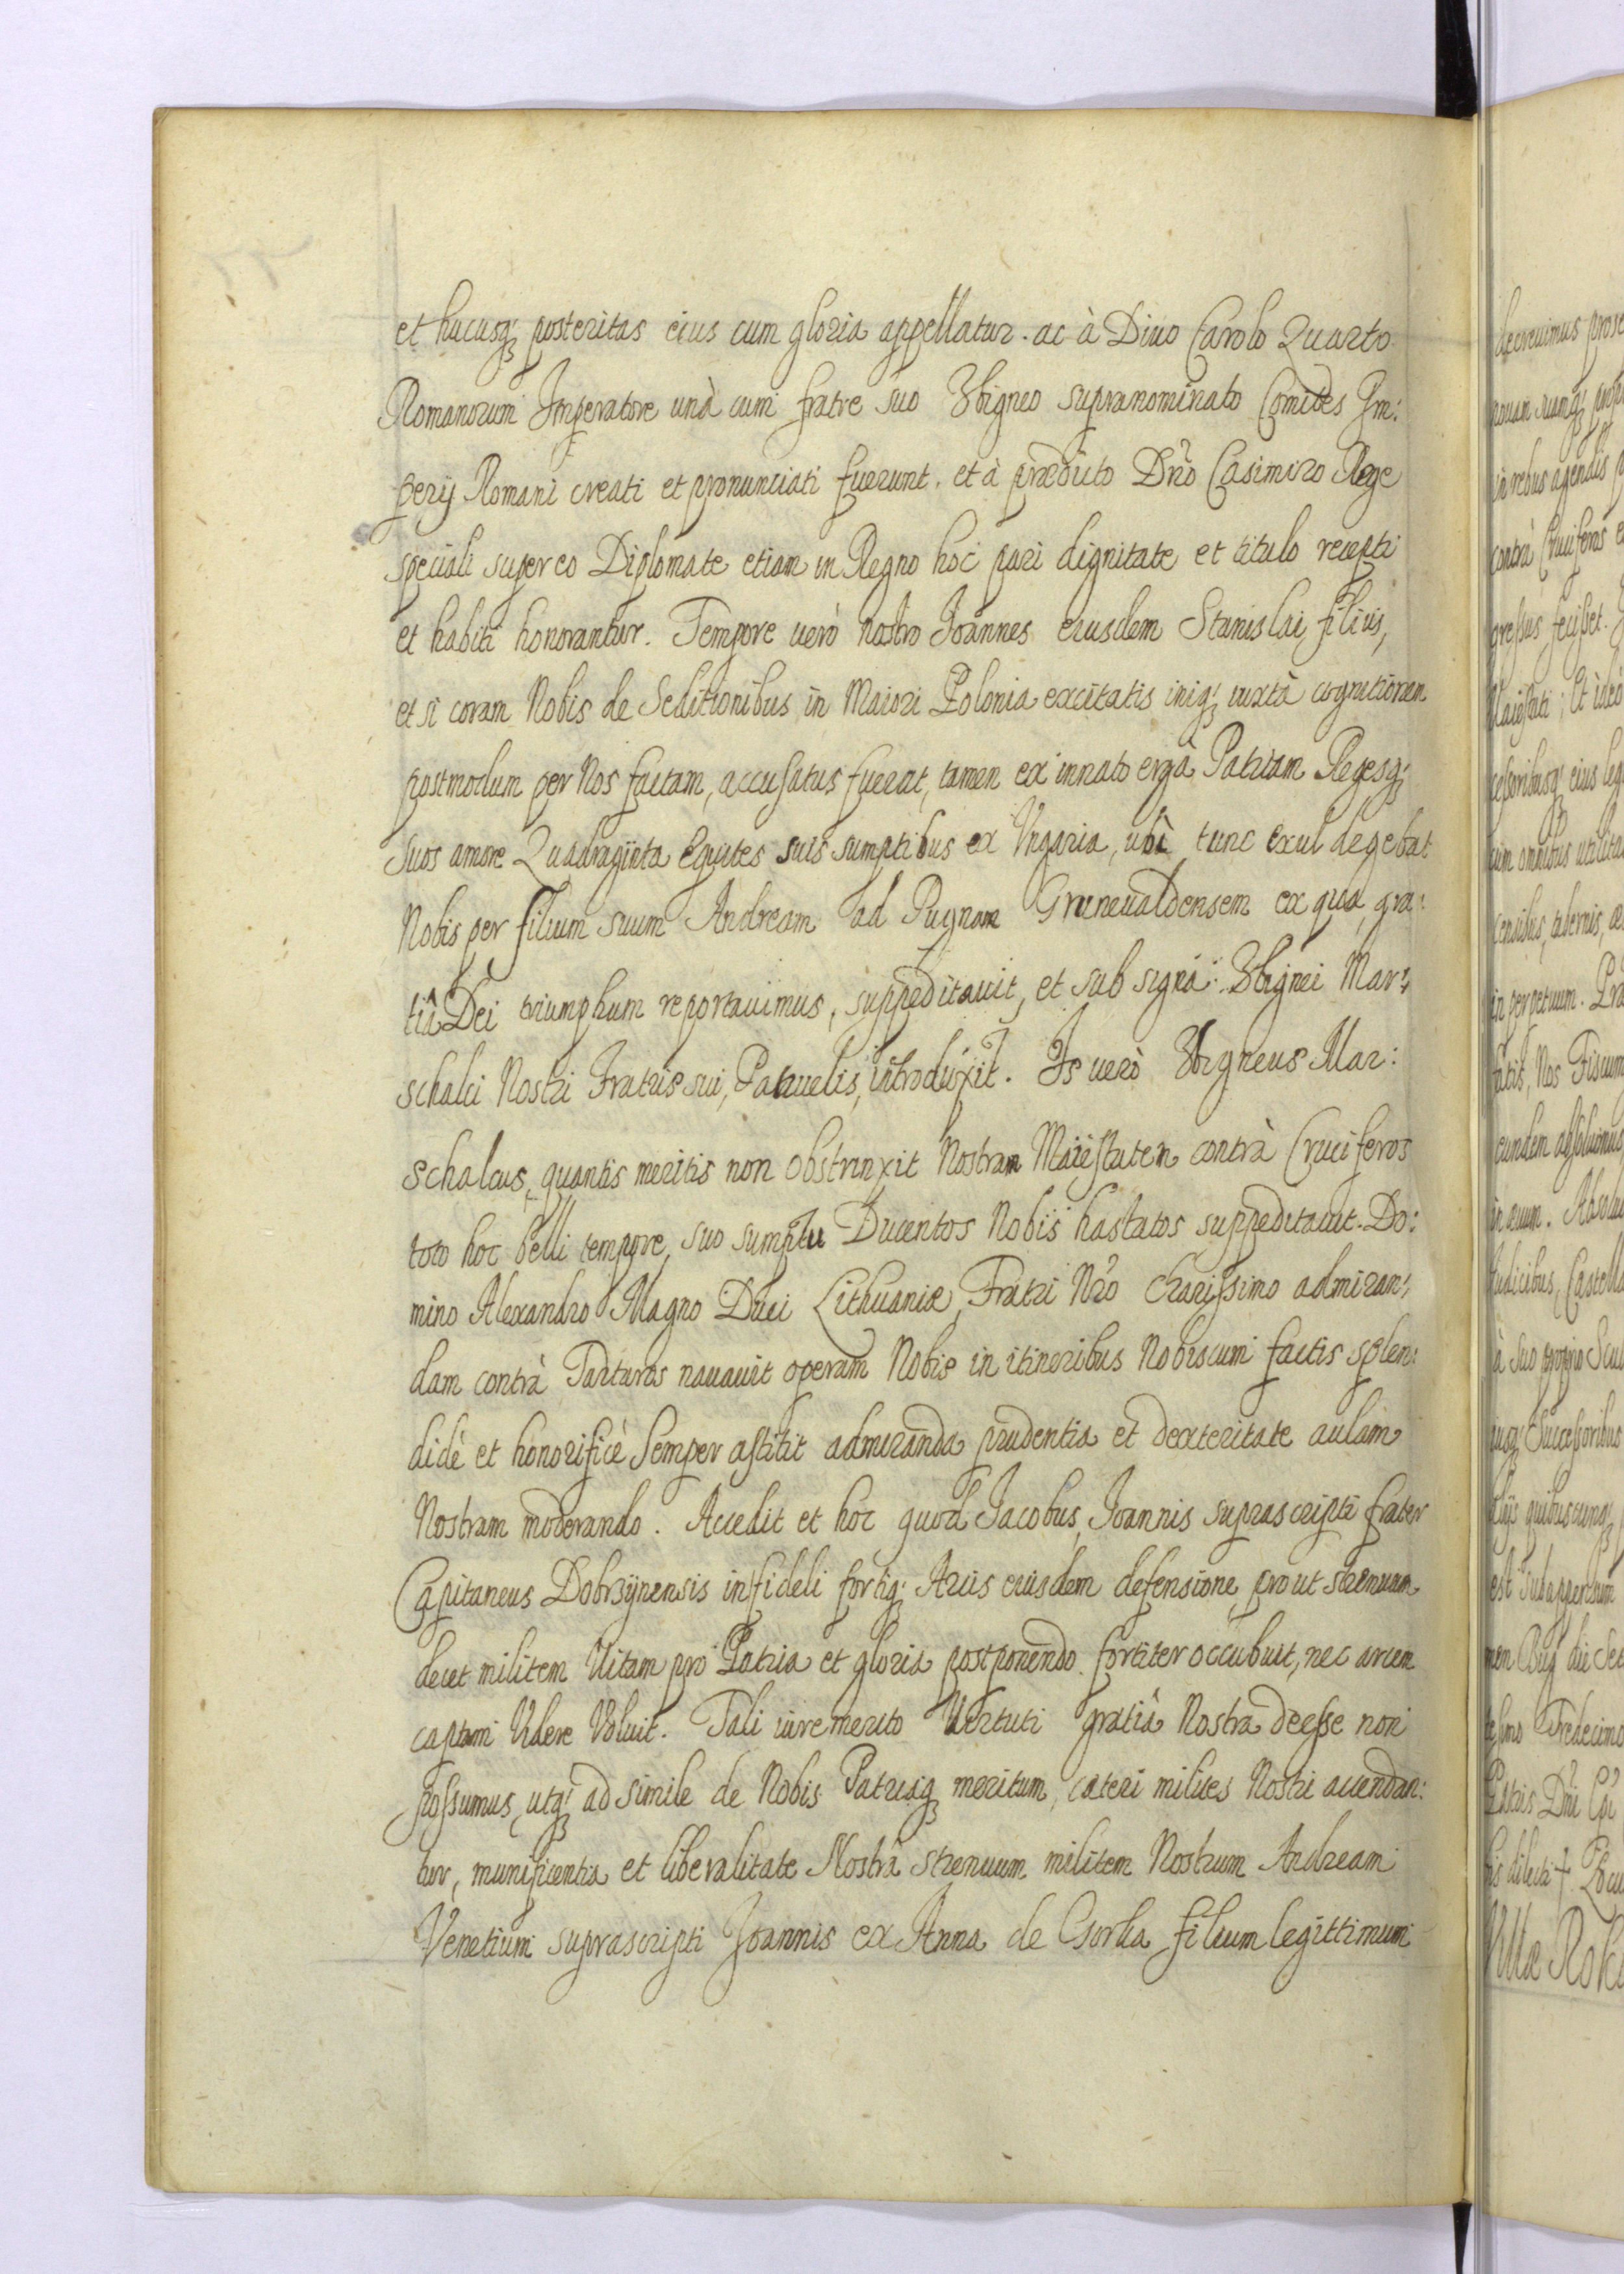 et hucusq; posteritas eius cum gloria appellatur. ac à Diuo Carolo Quarto
Romanorum Imperatore unà cum fratre suo Zbigneo supranominato Comites Im:
perij Romani creati et pronunciati fuerunt. et à prædicto Dño Casimiro Rege
speciali super eo Diplomate etiam in Regno hoc pari dignitate et titulo recepti
et habiti honorantur. Tempore uerò nostro Joannes eiusdem Stanislai filius,
et si coram Nobis de Seditionibus in Maiori Polonia excitatis iniq; iuxtà cognitionem
postmodum per Nos factam, accusatus fuerat, tamen ex innato ergà Patriam Regesq;
suos amore Quadraginta Equites suis sumptibus ex Vngaria, ubi tunc exul degebat
Nobis per filium suum Andream ad Pugnam Gruneualdensem ex qua gra:
tiâ Dei triumphum reportauimus, suppeditauit, et sub signa Zbignei Mar:
schalci Nostri Fratris sui, Patruelis, introduxit. Is uerò Zbigneus Mar:
schalcus, quantis meritis non obstrinxit Nostram Maiestatem contrà Cruciferos
toto hoc belli tempore, suo sumptu Ducentos Nobis hastatos suppeditauit. Do:
mino Alexandro Magno Duci Lithuaniæ, Fratri Nrõ Charissimo admiran:
dam contrà Tartaros nauauit operam Nobis in itineribus Nobiscum factis splen:
didè et honorificè semper astitit admiranda prudentia et dexteritate aulam
Nostram moderando. Accedit et hoc quod Jacobus, Joannis suprascripti frater
Capitaneus Dobrzynensis in fideli fortiq; Arcis eiusdem defensione, prout strenuum
decet militem Uitam pro Patria et gloria postponendo fortiter occubuit, nec arcem
captam Uidere Uoluit. Tali iure merito Uirtuti gratiâ Nostra deesse non
possumus, utq; ad simile de Nobis Patriaq; meritum, cæteri milites Nostri accendan:
tur, munificentia et liberalitate Nostrâ strenuum militem Nostrum Andream
Venetium suprascripti Joannis ex Anna de Gorka filium legittimum